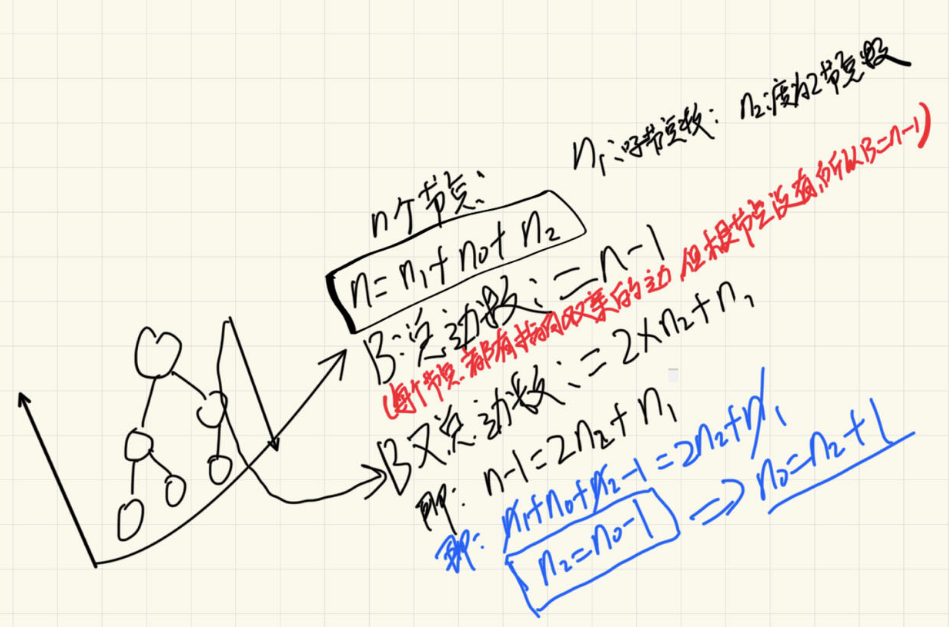 n₁:叶节点数: n₂:度为2节点数
n个节点:
n=n₁+n₀+n₂
B:总边数:=n-1
(每个节点都有指向双亲的边,但根节点没有,所以B=n-1)
B又总边数:=2×n₂+n₁
即: n-1=2n₂+n₁
即: n₁+n₀+n₂-1=2n₂+n₁
n₂=n₀-1 => n₀=n₂+1